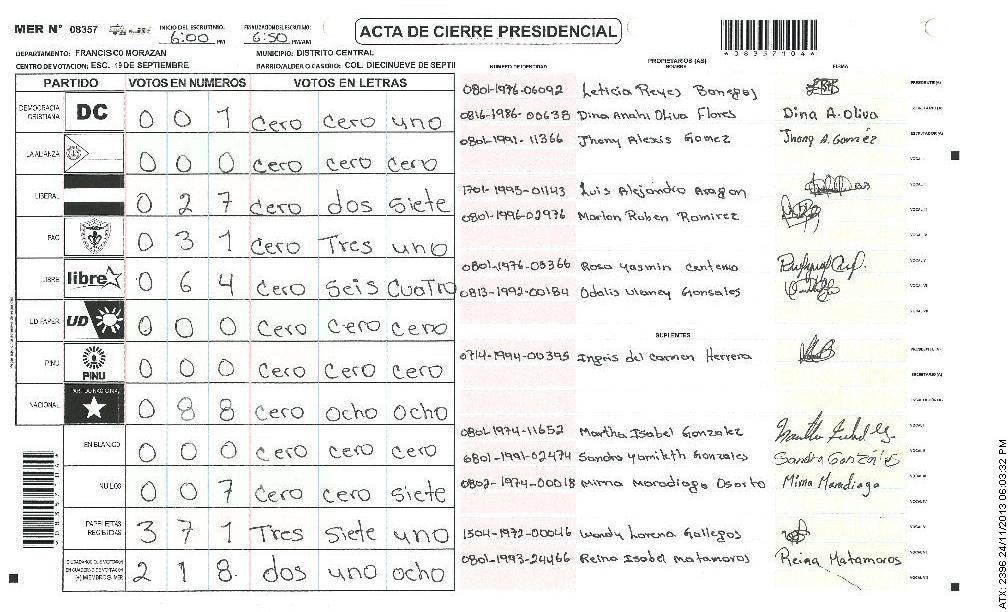 MER N° 08357
INICIO DEL ESCRUTINIO:
6:00 PM
FINALIZACION DEL ESCRUTINIO:
6:50 PM/AM
ACTA DE CIERRE PRESIDENCIAL
DEPARTAMENTO: FRANCISCO MORAZAN
MUNICIPIO: DISTRITO CENTRAL
CENTRO DE VOTACION: ESC. 19 DE SEPTIEMBRE
BARRIO/ALDEA O CASERIO: COL. DIECINUEVE DE SEPTI
PARTIDO VOTOS EN NUMEROS VOTOS EN LETRAS
DEMOCRACIA CRISTIANA DC 0 0 1 Cero cero uno
LA ALIANZA 0 0 0 cero cero cero
LIBERAL 0 2 7 Cero dos Siete
PAC 0 3 1 Cero Tres uno
LIBRE libre 0 6 4 Cero Seis cuatro
UD FAPER UD 0 0 0 Cero cero cero
PINU PINU 0 0 0 Cero cero cero
NACIONAL 0 8 8 cero ocho ocho
EN BLANCO 0 0 0 cero cero cero
NULOS 0 0 7 Cero cero Siete
PAPELETAS RECIBIDAS 3 7 1 Tres Siete uno
CIUDADANOS QUE VOTARON EN CUADERNO DE VOTACION (+) MIEMBROS MER 2 1 8. dos uno ocho
NUMERO DE IDENTIDAD
PROPIETARIOS (AS)
NOMBRE
FIRMA
0801-1976-06092 Leticia Reyes PRESIDENTE(A)
0816-1986-00638 Dina Anahi Oliva Flores Dina A. Oliva SECRETARIO(A)
0801-1991-11366 Jhony Alexis Gomez Jhony A. Gomez ESCRUTADOR(A)
1701-1995-01143 Luis Alejandro Aragon
0801-1996-02976 Marlon Ruben Ramirez
0801-1976-05366 Rosa Yasmin Centeno
0813-1992-00184 Odalis Gonsales
SUPLENTES
0714-1994-00395 Ingris del Carmen Herrera PRESIDENTE(A)
SECRETARIO(A)
0801-1974-11652 Martha Isabel Gonzalez
0801-1991-02474 Sandra Yamileth Gonzales Sandra González
0802-1974-00018 Mirna Maradiaga Osorto Mirna Maradiaga
1504-1972-00046 Wendy Lorena Gallegos
0801-1993-24466 Reina Isabel Matamoros Reina Matamoros
ATX: 2396 24/11/2013 06:03:32 PM